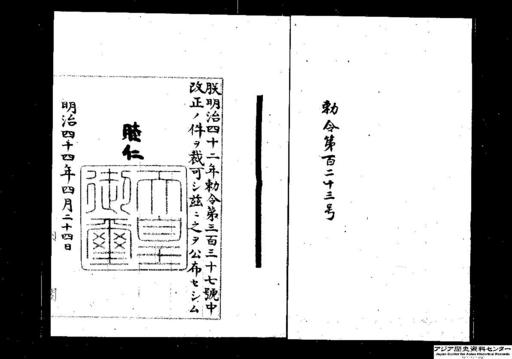 勅令第百二十三号
朕明治四十二年勅令第三百三十七號中
改正ノ件ヲ裁可シ茲ニ之ヲ公布セシム
睦仁
天皇御璽
明治四十四年四月二十四日
アジア歴史資料センター
Japan Center for Asian Historical Records